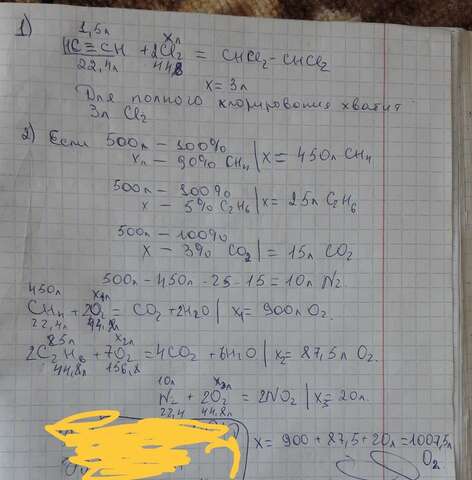 1)
1,5л xл
HC≡CH + 2Cl₂ = CHCl₂-CHCl₂
22,4л 44,8
x = 3л
Для полного хлорирования хватит
3л Cl₂
2) Если 500л - 100%
xл - 90% CH₄ | x = 450л CH₄
500л - 100%
x - 5% C₂H₆ | x = 25л C₂H₆
500л - 100%
x - 3% CO₂ | = 15л CO₂
500л - 450л - 25 - 15 = 10л N₂
450л x₁л
CH₄ + 2O₂ = CO₂ + 2H₂O | x₁ = 900л O₂.
22,4л 44,8л
25л x₂л
2C₂H₆ + 7O₂ = 4CO₂ + 6H₂O | x₂ = 87,5л O₂.
44,8л 156,8
10л x₃л
N₂ + 2O₂ = 2NO₂ | x₃ = 20л.
22,4 44,8л
x = 900 + 87,5 + 20л = 1007,5л
O₂.